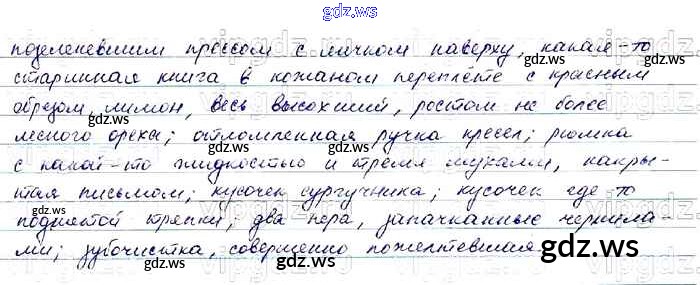 gdz.ws
позеленевшим прессом с яичком наверху, какая-то
старинная книга в кожаном переплёте с красным
обрезом, лимон, весь высохший, ростом не более
лесного ореха; отломленная ручка кресел; рюмка
с какой-то жидкостью и тремя мухами, накры-
тая письмом; кусочек сургучика; кусочек где-то
поднятой тряпки; два пера, запачканные чернила-
ми; зубочистка, совершенно пожелтевшая
gdz.ws